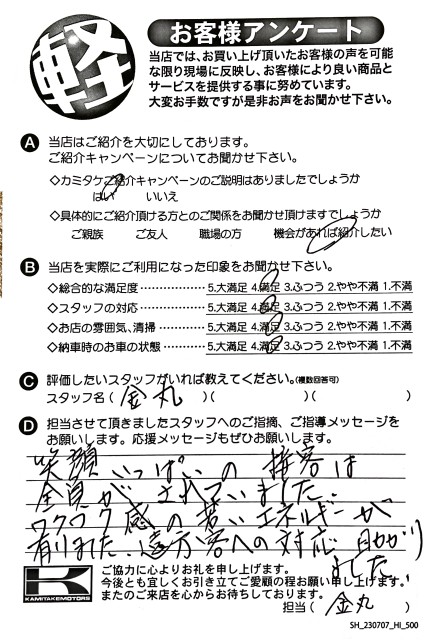 軽
お客様アンケート
当店では、お買い上げ頂いたお客様の声を可能
な限り現場に反映し、お客様により良い商品と
サービスを提供する事に努めています。
大変お手数ですが是非お声をお聞かせ下さい。
A 当店はご紹介を大切にしております。
ご紹介キャンペーンについてお聞かせ下さい。
◇カミタケご紹介キャンペーンのご説明はありましたでしょうか
はい いいえ
◇具体的にご紹介頂ける方とのご関係をお聞かせ頂けますでしょうか
ご親族 ご友人 職場の方 機会があれば紹介したい
B 当店を実際にご利用になった印象をお聞かせ下さい。
◇総合的な満足度 5.大満足 4.満足 3.ふつう 2.やや不満 1.不満
◇スタッフの対応 5.大満足 4.満足 3.ふつう 2.やや不満 1.不満
◇お店の雰囲気、清掃 5.大満足 4.満足 3.ふつう 2.やや不満 1.不満
◇納車時のお車の状態 5.大満足 4.満足 3.ふつう 2.やや不満 1.不満
C 評価したいスタッフがいれば教えてください。(複数回答可)
スタッフ名(金丸)( )( )
D 担当させて頂きましたスタッフへのご指摘、ご指導メッセージを
お願いします。応援メッセージもぜひお願いします。
笑顔いっぱいの接客は
全員がされていました。
ワクワク感の若いエネルギーが
有りました。遠方客への対応助かり
ました。
ご協力に心よりお礼を申し上げます。
今後とも宜しくお引き立てご愛顧の程お願い申し上げます。
またのご来店を心からお待ちしております。
KAMITAKEMOTORS
担当(金丸)
SH_230707_HI_500